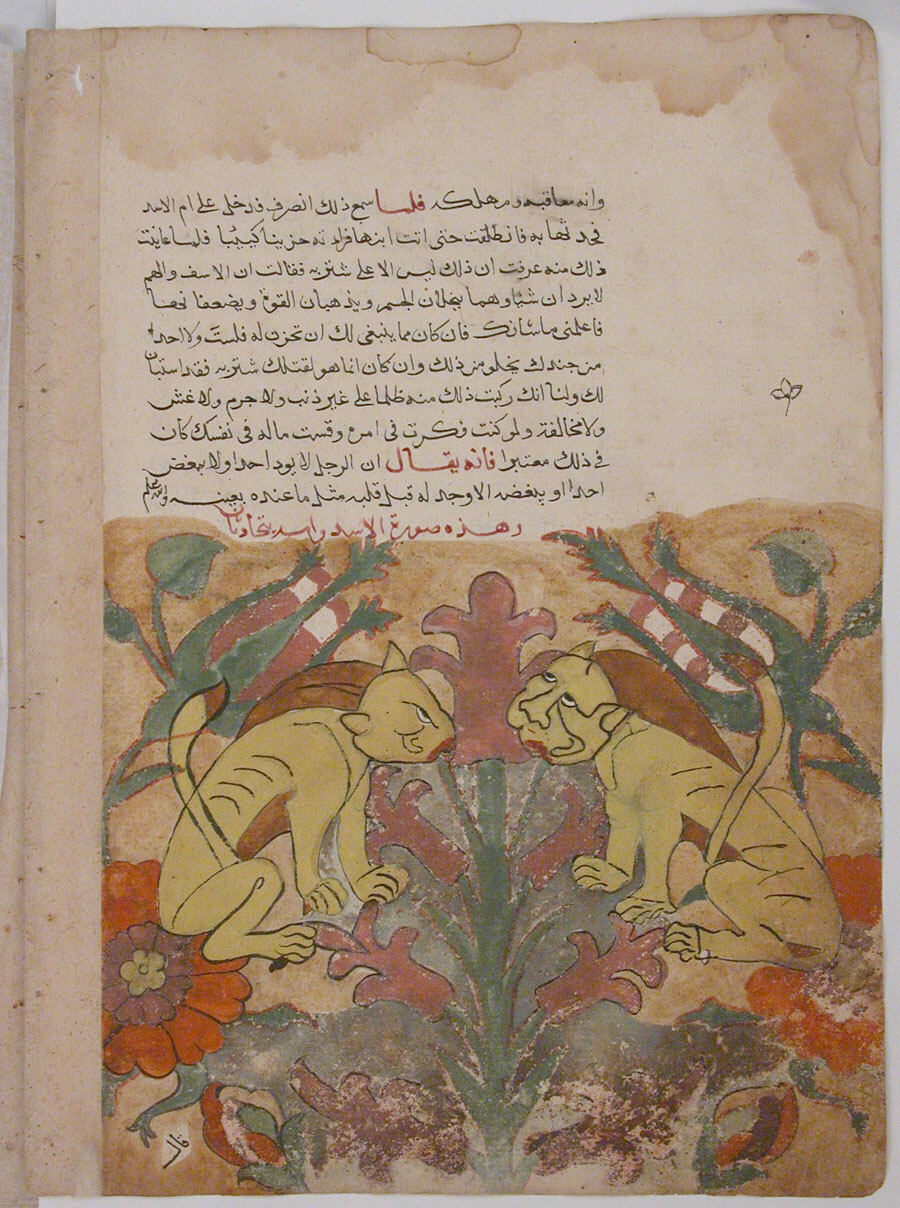 وانه معاقبه ومهلكه فلما سمع ذلك انصرف فدخل على ام الاسد
فحدثها به فانطلقت حتى اتت ابنها فراته حزينا كييبا فلما عاينت
ذلك منه عرفت ان ذلك ليس الا على شتربه فقالت ان الاسف والهم
لا يردان شيا وهما ينحلان الجسم ويذهبان القوة ويضعفانها
فاعلمنى ماشانك فان كان مما ينبغى لك ان تحزن له فلست ولا احد
من جندك يخلو من ذلك وان كان انما هو لقتلك شتربه فقد استبان
لك ولنا انك ركبت ذلك منه ظلما على غير ذنب ولا جرم ولا غش
ولا مخالفة ولو كنت فكرت فى امره وقست ماله فى نفسك كان
فى ذلك معتبرا فانه يقال ان الرجل لا يود احدا ولا يبغض
احدا او يبغضه الا وجد له قبل قلبه مثل ما عنده بعينه والله اعلم
وهذه صورة الاسد وامه يتحادثان
قال